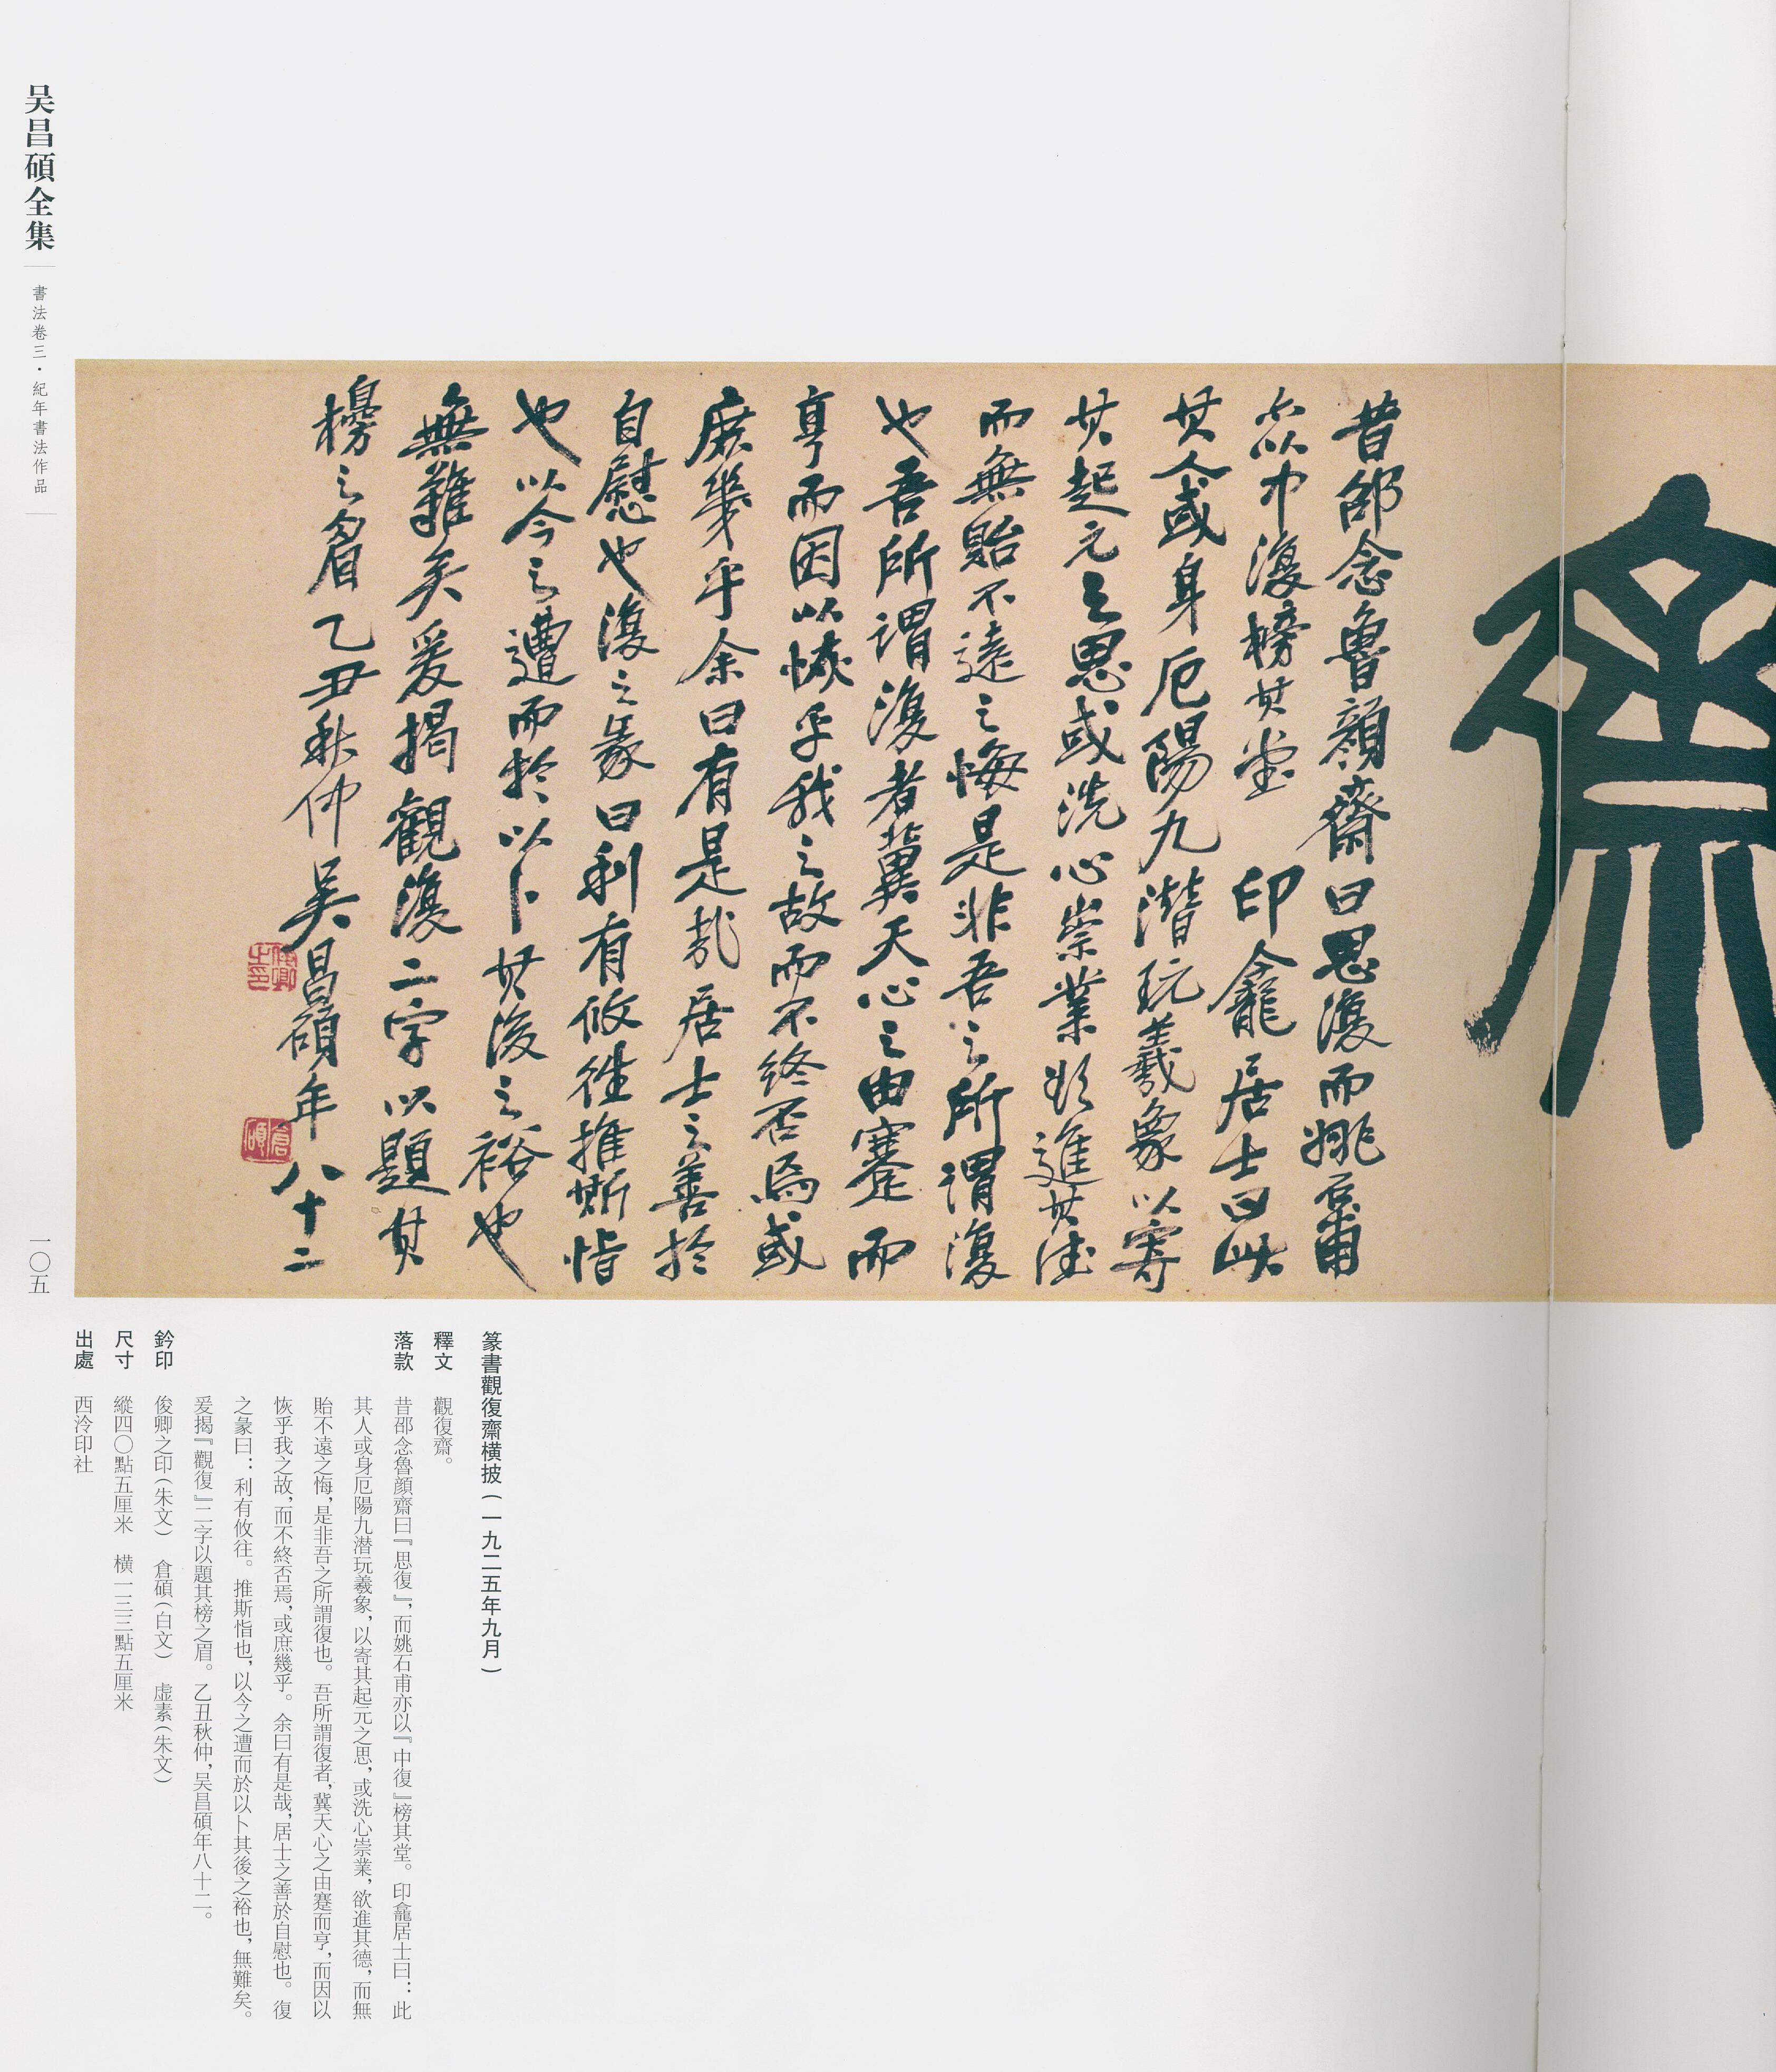 齋
昔邵念魯顏齋曰思復而姚石甫
亦以中復榜其堂 印龕居士曰此
其人或身厄陽九潛玩羲象以寄
其起元之思或洗心崇業欲進其德
而無貽不遠之悔是非吾之所謂復
也吾所謂復者冀天心之由蹇而
亨而因以恢乎我之故而不終否焉或
庶幾乎余曰有是哉居士之善於
自慰也復之彖曰利有攸往推斯恉
也以今之遭而於以卜其後之裕也
無難矣爰揭觀復二字以題其
榜之眉乙丑秋仲吴昌碩年八十二
俊卿之印
倉碩
篆書觀復齋橫披(一九二五年九月)
釋文 觀復齋。
落款 昔邵念魯顔齋曰『思復』,而姚石甫亦以『中復』榜其堂。印龕居士曰：此
其人或身厄陽九潛玩羲象,以寄其起元之思,或洗心崇業,欲進其德,而無
貽不遠之悔,是非吾之所謂復也。吾所謂復者,冀天心之由蹇而亨,而因以
恢乎我之故,而不終否焉,或庶幾乎。余曰有是哉,居士之善於自慰也。復
之彖曰：利有攸往。推斯恉也,以今之遭而於以卜其後之裕也,無難矣。
爰揭『觀復』二字以題其榜之眉。乙丑秋仲,吴昌碩年八十二。
鈐印 俊卿之印(朱文) 倉碩(白文) 虛素(朱文)
尺寸 縱四〇點五厘米 橫一三三點五厘米
出處 西泠印社
吴昌碩全集
書法卷三·紀年書法作品
一〇五